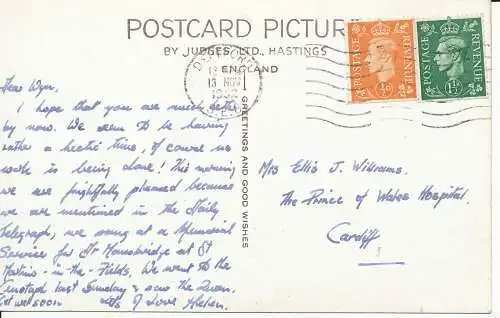 POSTCARD PICTURE
BY JUDGES, LTD., HASTINGS
ENGLAND
DEPTFORD
13 NOV
1952
S.E.8
POSTAGE REVENUE
½D
POSTAGE REVENUE
1½D
GREETINGS AND GOOD WISHES
Dear Wyn,
I hope that you are much better
by now. We seem to be having
rather a hectic time, of course no
work is being done! This morning
we are frightfully pleased because
we are mentioned in the Daily
Telegraph, we sang at a Memorial
Service for Dr Mansbridge at St
Martins-in-the-Fields. We went to the
Cenotaph last Sunday & saw the Queen.
Get well soon Lots of Love Helen.
Mrs Ellis J. Williams.
The Prince of Wales Hospital.
Cardiff